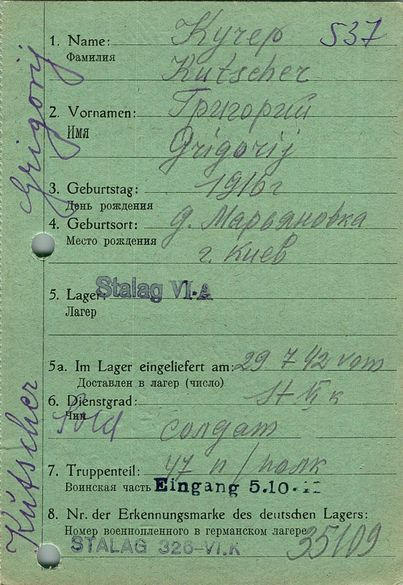 Grigorij
Kutscher
1. Name: Кучер 537
Фамилия Kutscher
2. Vornamen: Григорий
Имя Grigorij
3. Geburtstag: 1916 г
День рождения
4. Geburtsort: д. Марьяновка
Место рождения г. Киев
5. Lager: Stalag VI.A
Лагерь
5a. Im Lager eingeliefert am: 29 7 42 vom
Доставлен в лагерь (число)
6. Dienstgrad: St VI K
Чин Sold солдат
7. Truppenteil: 47 п/полк
Воинская часть Eingang 5.10.
8. Nr. der Erkennungsmarke des deutschen Lagers:
Номер военнопленного в германском лагере 35109
STALAG 326-VI.K